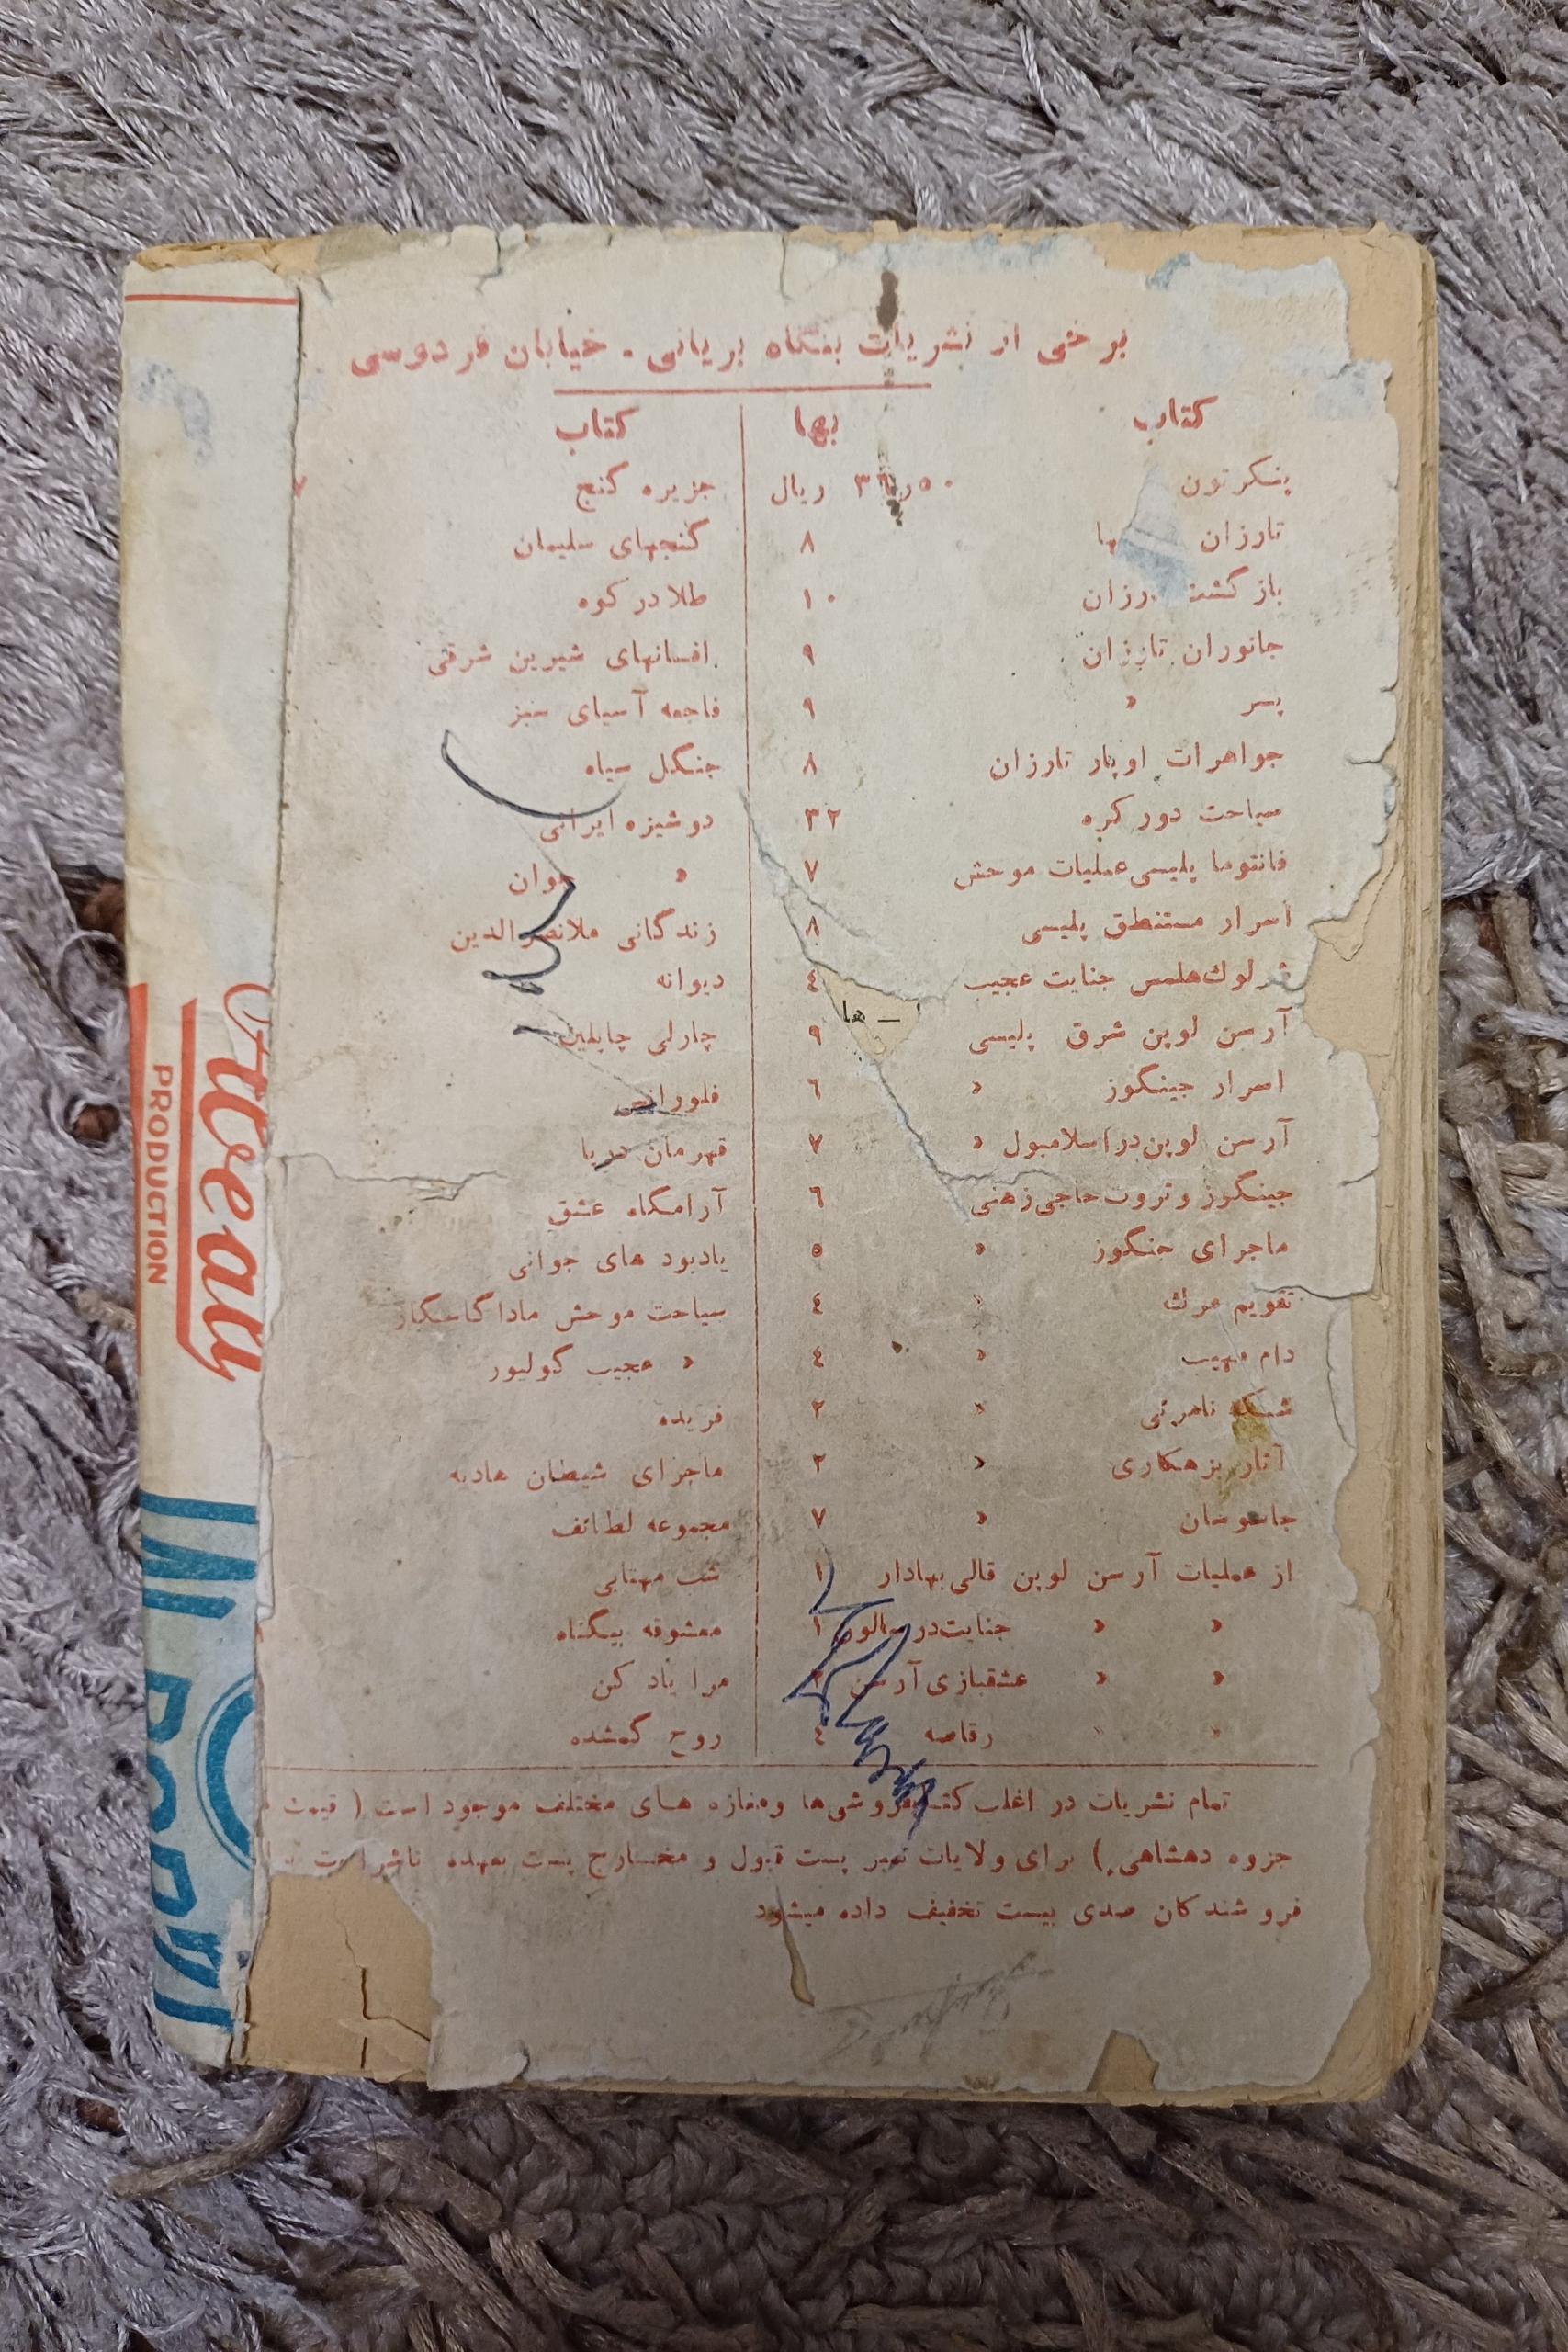 برخی از نشریات بنگاه بریانی - خیابان فردوسی
کتاب بها کتاب
پنکرتون ۳٦ر۵۰ ریال جزیره گنج ۷
تارزان ها ۸ گنجهای سلیمان
بازگشت رزان ۱۰ طلا در کوه
جانوران تارزان ۹ افسانهای شیرین شرقی
پسر » ۹ فاجعه آسیای سبز
جواهرات اوپار تارزان ۸ جنگل سیاه
سیاحت دور کره ۳۲ دوشیزه ایرانی
فانتوما پلیسی عملیات موحش ۷ » جوان
اسرار مستنطق پلیسی ۸ زندگانی ملانصرالدین
شرلوك هلمس جنایت عجیب ٤ دیوانه
ـ ها
آرسن لوپن شرق پلیسی ۹ چارلی چاپلین
اسرار جینگوز » ٦
آرسن لوپن در اسلامبول » ۷ قهرمان دریا
جینگوز و ثروت حاجی زهنی ٦ آرامگاه عشق
ماجرای جنگوز » ٥ یادبود های جوانی
تقویم مرك » ٤ سیاحت موحش ماداگاسکار
دام مهیب » ٤ » عجیب گولیور
شبکه نامرئی » ۲ فریده
آثار بزهکاری » ۲ ماجرای شیطان هادیه
جاسوسان » ۷ مجموعه لطائف
از عملیات آرسن لوپن قالی بهادار ۱ شب مهتابی
» » جنایت در سالون ۱ معشوقه بیگناه
» » عشقبازی آرسن ۲ مرا یاد کن
» » رقاصه ٤ روح گمشده
تمام نشریات در اغلب کتابفروشی‌ها ومغازه هـای مختلف موجود است ( قیمت
جزوه دهشاهی ) برای ولایات تمبر پست قبول و مخـارج پست بعهده ناشر است
فروشندگان صدی بیست تخفیف داده میشود
PRODUCTION